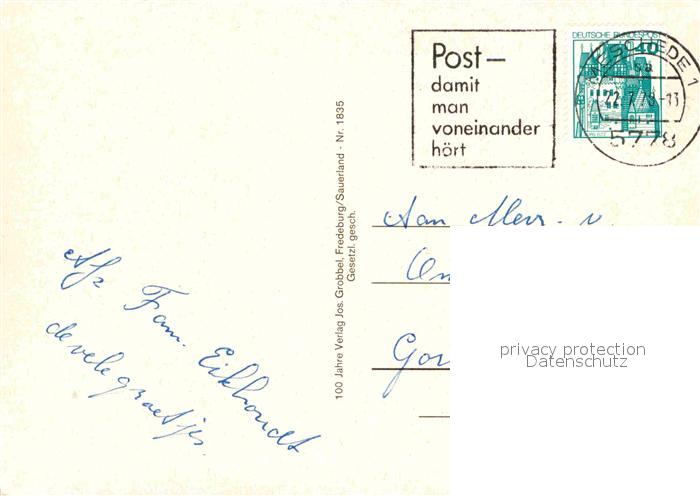 Post –
damit
man
voneinander
hört
DEUTSCHE BUNDESPOST
40
MESCHEDE 1
22.7.78-13
5778
100 Jahre Verlag Jos. Grobbel, Fredeburg/Sauerland - Nr. 1835
Gesetzl. gesch.
Aan Mevr. v.
Gor
Afz Fam. Eikhoudt
de vele groetjes
privacy protection
Datenschutz